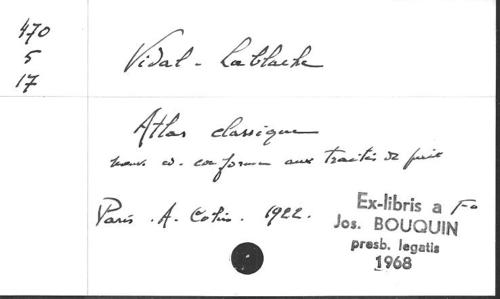 470
5
17
Vidal - Lablache
Atlas classique
nouv. éd. conforme aux traités de paix
Paris . A. Colin . 1922 .
Ex-libris a Fo
Jos. BOUQUIN
presb. legatis
1968